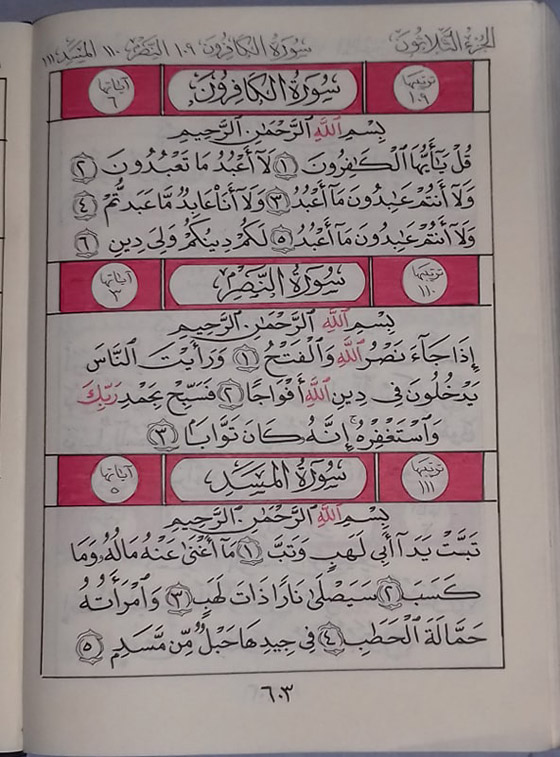 الجزء الثلاثون سورة الكافرون ١٠٩ النصر ١١٠ المسد ١١١
ترتيبها ١٠٩ سُورَةُ الكَافِرُونَ آياتها ٦
بِسْمِ اللَّهِ الرَّحْمَٰنِ الرَّحِيمِ
قُلْ يَٰٓأَيُّهَا ٱلْكَٰفِرُونَ ١ لَآ أَعْبُدُ مَا تَعْبُدُونَ ٢
وَلَآ أَنتُمْ عَٰبِدُونَ مَآ أَعْبُدُ ٣ وَلَآ أَنَا۠ عَابِدٌ مَّا عَبَدتُّمْ ٤
وَلَآ أَنتُمْ عَٰبِدُونَ مَآ أَعْبُدُ ٥ لَكُمْ دِينُكُمْ وَلِىَ دِينِ ٦
ترتيبها ١١٠ سُورَةُ النَّصْرِ آياتها ٣
بِسْمِ اللَّهِ الرَّحْمَٰنِ الرَّحِيمِ
إِذَا جَآءَ نَصْرُ ٱللَّهِ وَٱلْفَتْحُ ١ وَرَأَيْتَ ٱلنَّاسَ
يَدْخُلُونَ فِى دِينِ ٱللَّهِ أَفْوَاجًا ٢ فَسَبِّحْ بِحَمْدِ رَبِّكَ
وَٱسْتَغْفِرْهُ ۚ إِنَّهُۥ كَانَ تَوَّابًۢا ٣
ترتيبها ١١١ سُورَةُ المَسَدِ آياتها ٥
بِسْمِ اللَّهِ الرَّحْمَٰنِ الرَّحِيمِ
تَبَّتْ يَدَآ أَبِى لَهَبٍ وَتَبَّ ١ مَآ أَغْنَىٰ عَنْهُ مَالُهُۥ وَمَا
كَسَبَ ٢ سَيَصْلَىٰ نَارًا ذَاتَ لَهَبٍ ٣ وَٱمْرَأَتُهُۥ
حَمَّالَةَ ٱلْحَطَبِ ٤ فِى جِيدِهَا حَبْلٌ مِّن مَّسَدٍۭ ٥
٦٠٣